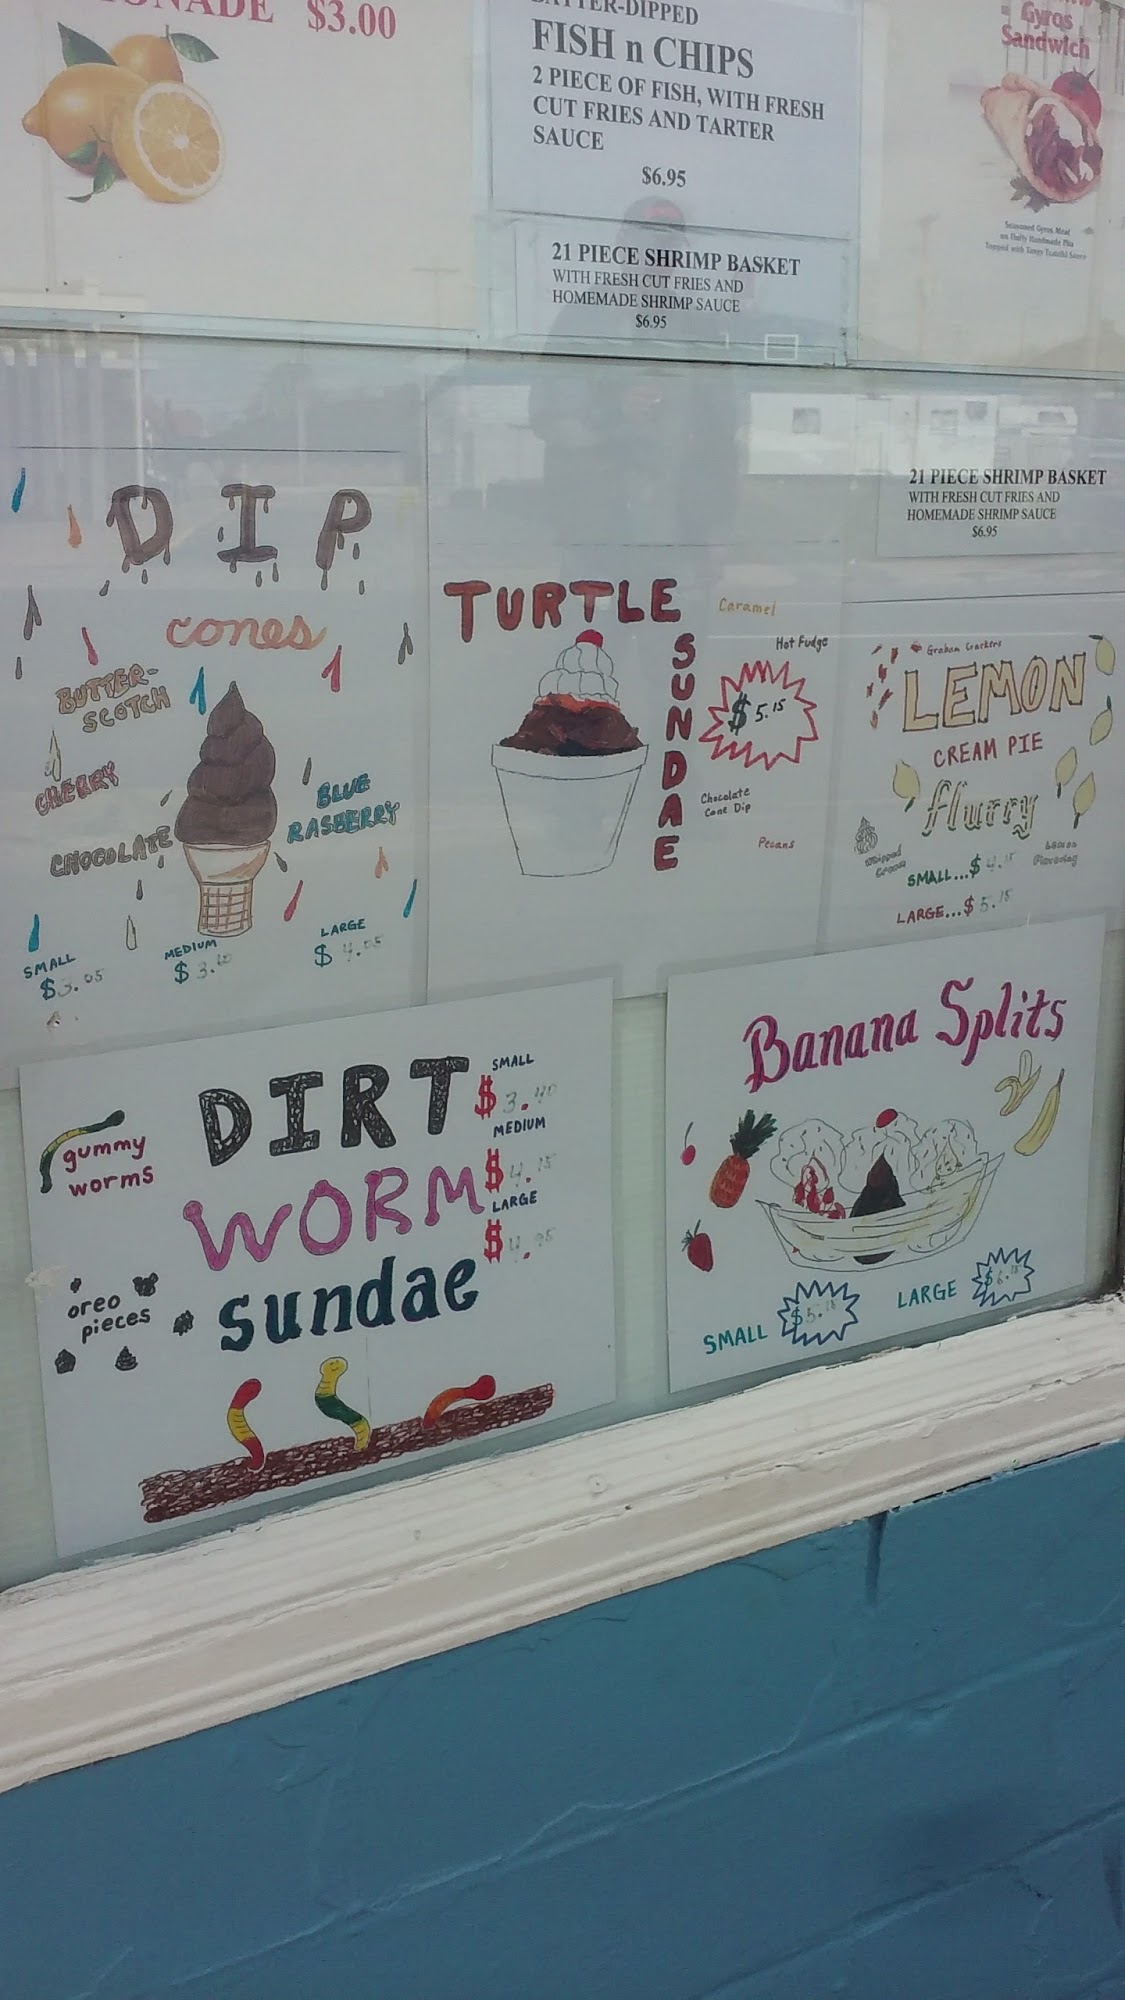 $3.00
FISH n CHIPS
2 PIECE OF FISH, WITH FRESH
CUT FRIES AND TARTER
SAUCE
$6.95
21 PIECE SHRIMP BASKET
WITH FRESH CUT FRIES AND
HOMEMADE SHRIMP SAUCE
$6.95
Gyros
Sandwich
Seasoned Gyros Meat
on Fluffy Handmade Pita
Topped with Tangy Tzatziki Sauce
DIP
cones
BUTTER-
SCOTCH
CHERRY
CHOCOLATE
BLUE
RASBERRY
SMALL
$3.05
MEDIUM
$3.60
LARGE
$4.05
TURTLE
SUNDAE
Caramel
Hot Fudge
$5.15
Chocolate
Cone Dip
Pecans
21 PIECE SHRIMP BASKET
WITH FRESH CUT FRIES AND
HOMEMADE SHRIMP SAUCE
$6.95
Graham Crackers
LEMON
CREAM PIE
flurry
Whipped
Cream
SMALL...$4.15
LARGE...$5.15
DIRT
WORM
sundae
gummy
worms
oreo
pieces
SMALL
$3.40
MEDIUM
$4.15
LARGE
$4.95
Banana Splits
SMALL $5.15
LARGE $6.15